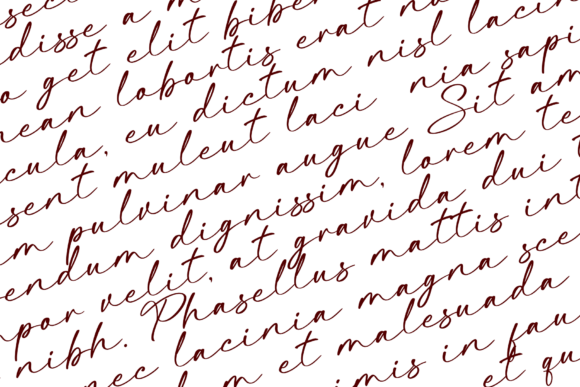 sec
disse a m
o get elit bibe
nean lobortis erat nu
cula, eu dictum nisl lacin
sent muleut laci nia sapi
m pulvinar augue Sit am
endum dignissim, lorem te
mpor velit, at gravida dui t
nibh. Phasellus mattis int
nec lacinia magna sce
m et malesuada
imis in fau
et qu